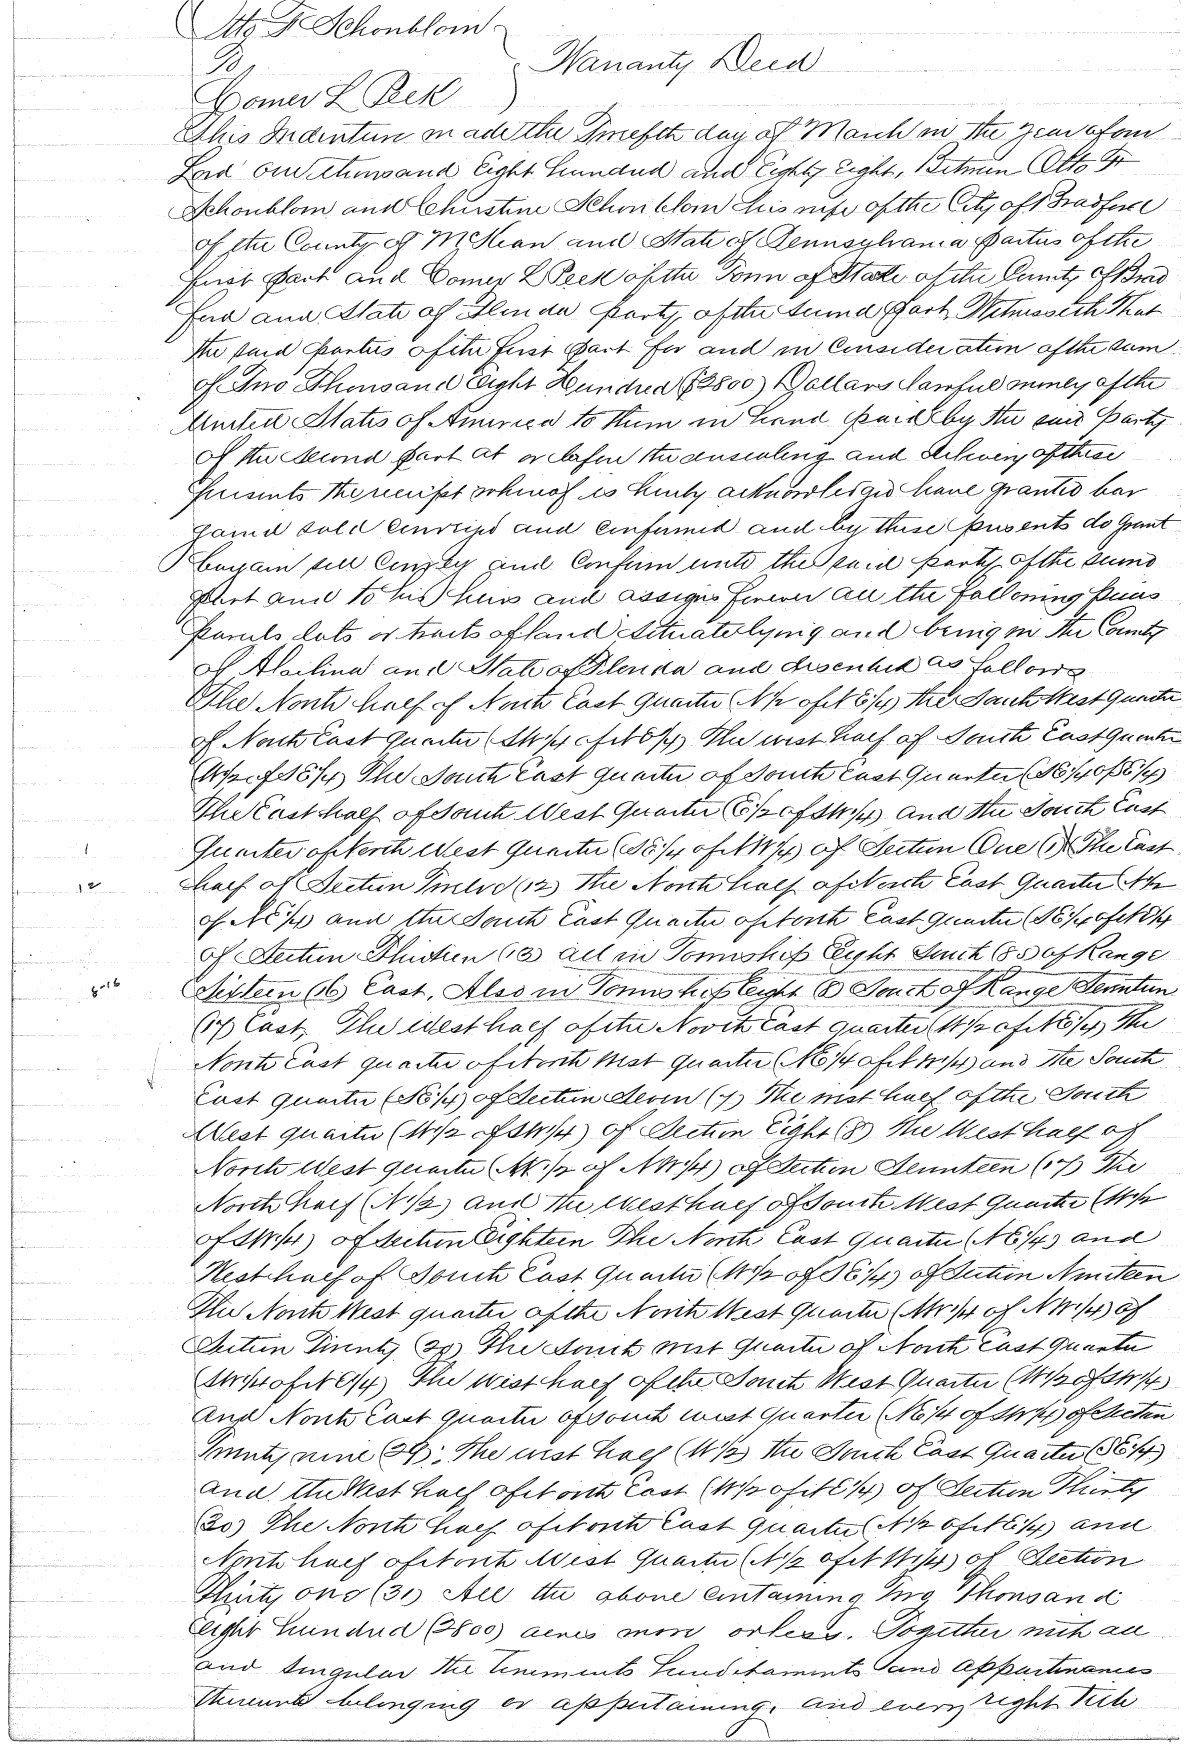 Otto F Schonblom
To
Warranty Deed
Comer L Peek
This Indenture made the Twelfth day of March in the year of our
Lord one thousand Eight hundred and Eighty Eight, Between Otto F
Schonblom and Christine Schonblom his wife of the City of Bradford
of the County of McKean and State of Pennsylvania parties of the
first part and Comer L Peek of the Town of Stark of the County of Brad
ford and State of Florida party of the second part, Witnesseth That
the said parties of the first part for and in Consideration of the sum
of Two Thousand Eight Hundred ($2800) Dollars lawful money of the
United States of America to them in hand paid by the said party
of the second part at or before the ensealing and delivery of these
presents the receipt whereof is hereby acknowledged have granted bar
gained sold Conveyed and Confirmed and by these presents do Grant
bargain sell Convey and Confirm unto the said party of the second
part and to his heirs and assigns forever all the following pieces
parcels lots or tracts of land situate lying and being in the County
of Alachua and State of Florida and described as follows
The North half of North East Quarter (N½ of NE¼) the South West quarter
of North East quarter (SW¼ of NE¼) The west half of South East quarter
(W½ of SE¼) The South East quarter of South East Quarter (SE¼ of SE¼)
The East half of South West Quarter (E½ of SW¼) and the South East
1
Quarter of North West Quarter (SE¼ of NW¼) of Section One (1) The East
12
half of Section Twelve (12) The North half of North East Quarter (N½
of NE¼) and the South East Quarter of North East quarter (SE¼ of NE¼
of Section Thirteen (13) all in Township Eight South (8S) of Range
8-16
Sixteen (16) East, Also in Township Eight (8) South of Range Seventeen
(17) East, The West half of the North East quarter (W½ of NE¼) The
North East quarter of North West quarter (NE¼ of NW¼) and the South
East quarter (SE¼) of Section Seven (7) The west half of the South
West quarter (W½ of SW¼) of Section Eight (8) The West half of
North West quarter (W½ of NW¼) of Section Seventeen (17) The
North half (N½) and the West half of South West Quarter (W½
of SW¼) of Section Eighteen The North East Quarter (NE¼) and
West half of South East Quarter (W½ of SE¼) of Section Nineteen
The North West quarter of the North West Quarter (NW¼ of NW¼) of
Section Twenty (20) The South west Quarter of North East Quarter
(SW¼ of NE¼) The west half of the South West Quarter (W½ of SW¼)
and North East quarter of South west Quarter (NE¼ of SW¼) of Section
Twenty nine (29); The west half (W½) the South East Quarter (SE¼)
and the West half of North East (W½ of NE¼) of Section Thirty
(30) The North half of North East Quarter (N½ of NE¼) and
North half of North West Quarter (N½ of NW¼) of Section
Thirty one (31) All the above Containing Two Thousand
Eight hundred (2800) acres more or less. Together with all
and singular the tenements hereditaments and appurtenances
thereunto belonging or appertaining, and every right title